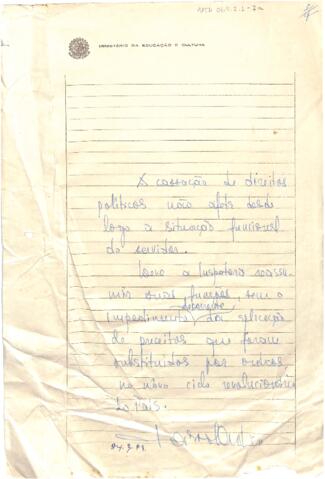 MINISTÉRIO DA EDUCAÇÃO E CULTURA
A cassação de direitos
políticos não afeta desde
logo a situação funcional
do servidor.
a Inspetora reassu-
mir suas funções, sem o
impedimento decorrente da aplicação
de preceitos que foram
substituídos por outros
no novo ciclo revolucionário
do País.